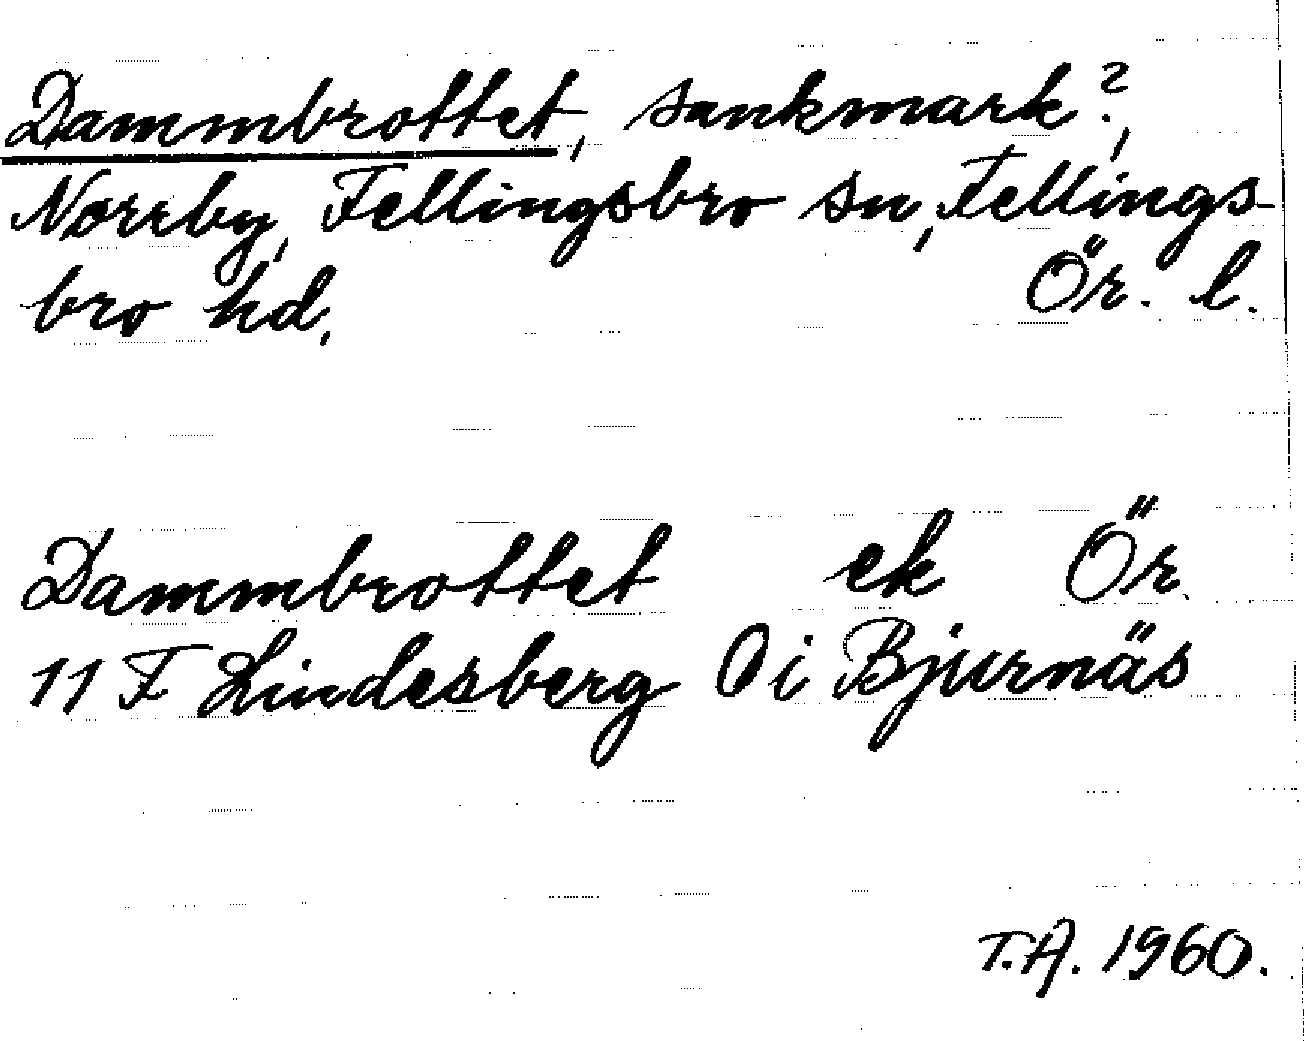 Dammbrottet, sankmark?,
Norrby, Fellingsbro sn, Fellings-
bro hd. Ör. l.
Dammbrottet ek Ör.
11 F Lindesberg 0 i Bjurnäs
T.A. 1960.